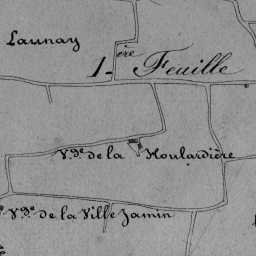 Launay
1ère Feuille
Vge de la Houlardière
Vge de la Ville Jamin